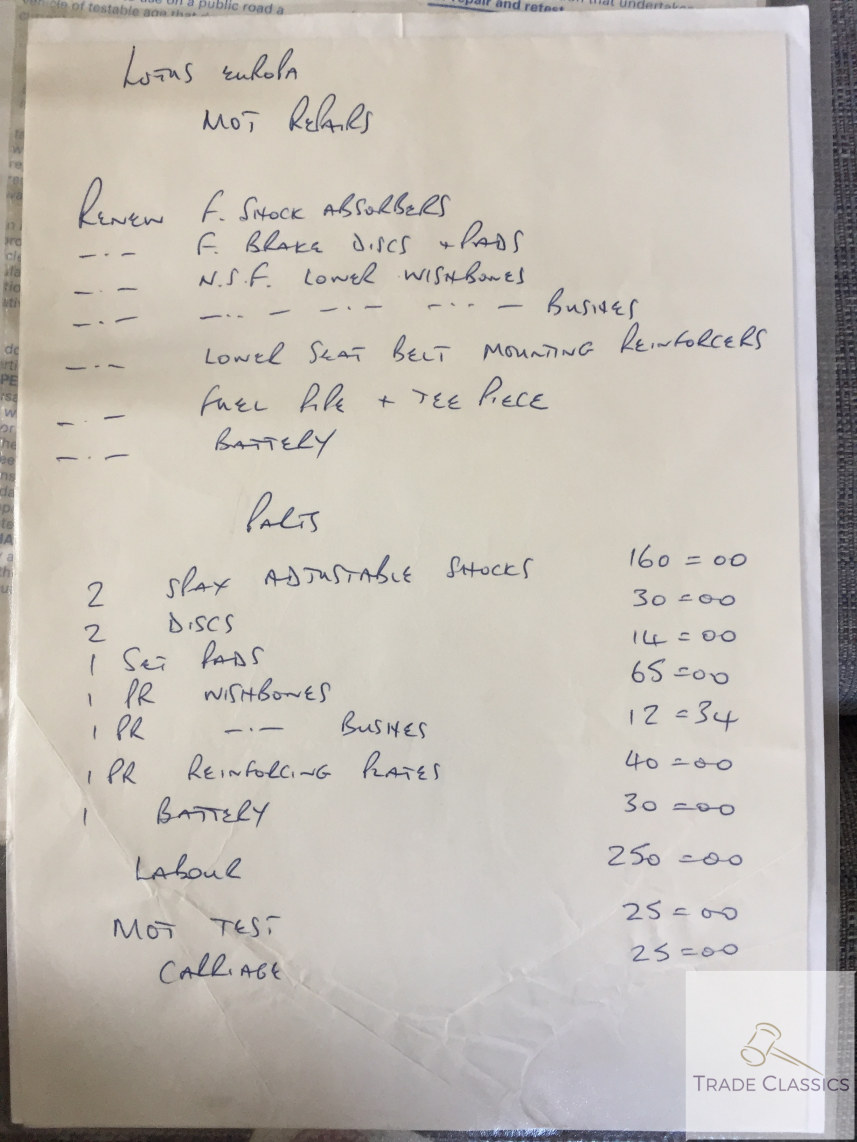 on a public road a
vehicle of testable age that
repair and retest
that undertake
LOTUS EUROPA
MOT REPAIRS
RENEW F. SHOCK ABSORBERS
—·— F. BRAKE DISCS + PADS
—·— N.S.F. LOWER WISHBONES
—·— —·· — —·— —·· — BUSHES
—·— LOWER SEAT BELT MOUNTING REINFORCERS
—·— FUEL PIPE + TEE PIECE
—·— BATTERY
PARTS
2 SPAX ADJUSTABLE SHOCKS 160=00
2 DISCS 30=00
1 SET PADS 14=00
1 PR WISHBONES 65=00
1 PR —·— BUSHES 12=34
1 PR REINFORCING PLATES 40=00
1 BATTERY 30=00
LABOUR 250=00
MOT TEST 25=00
CARRIAGE 25=00
TRADE CLASSICS